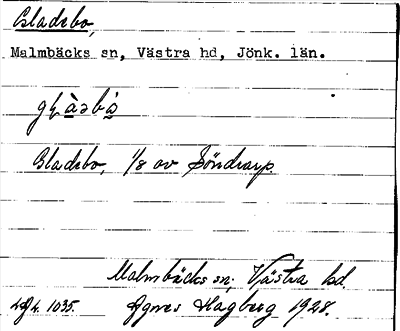 Gladsbo,
Malmbäcks sn, Västra hd, Jönk. län.
Gladsbo, 1/8 av Söndrarp.
Malmbäcks sn, Västra hd
1035. Agnes Hagberg 1928.